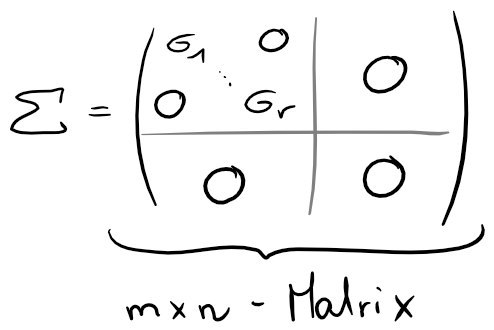 σ₁ 0
⋱ 0
Σ = 0 σᵣ
0 0
m x n - Matrix